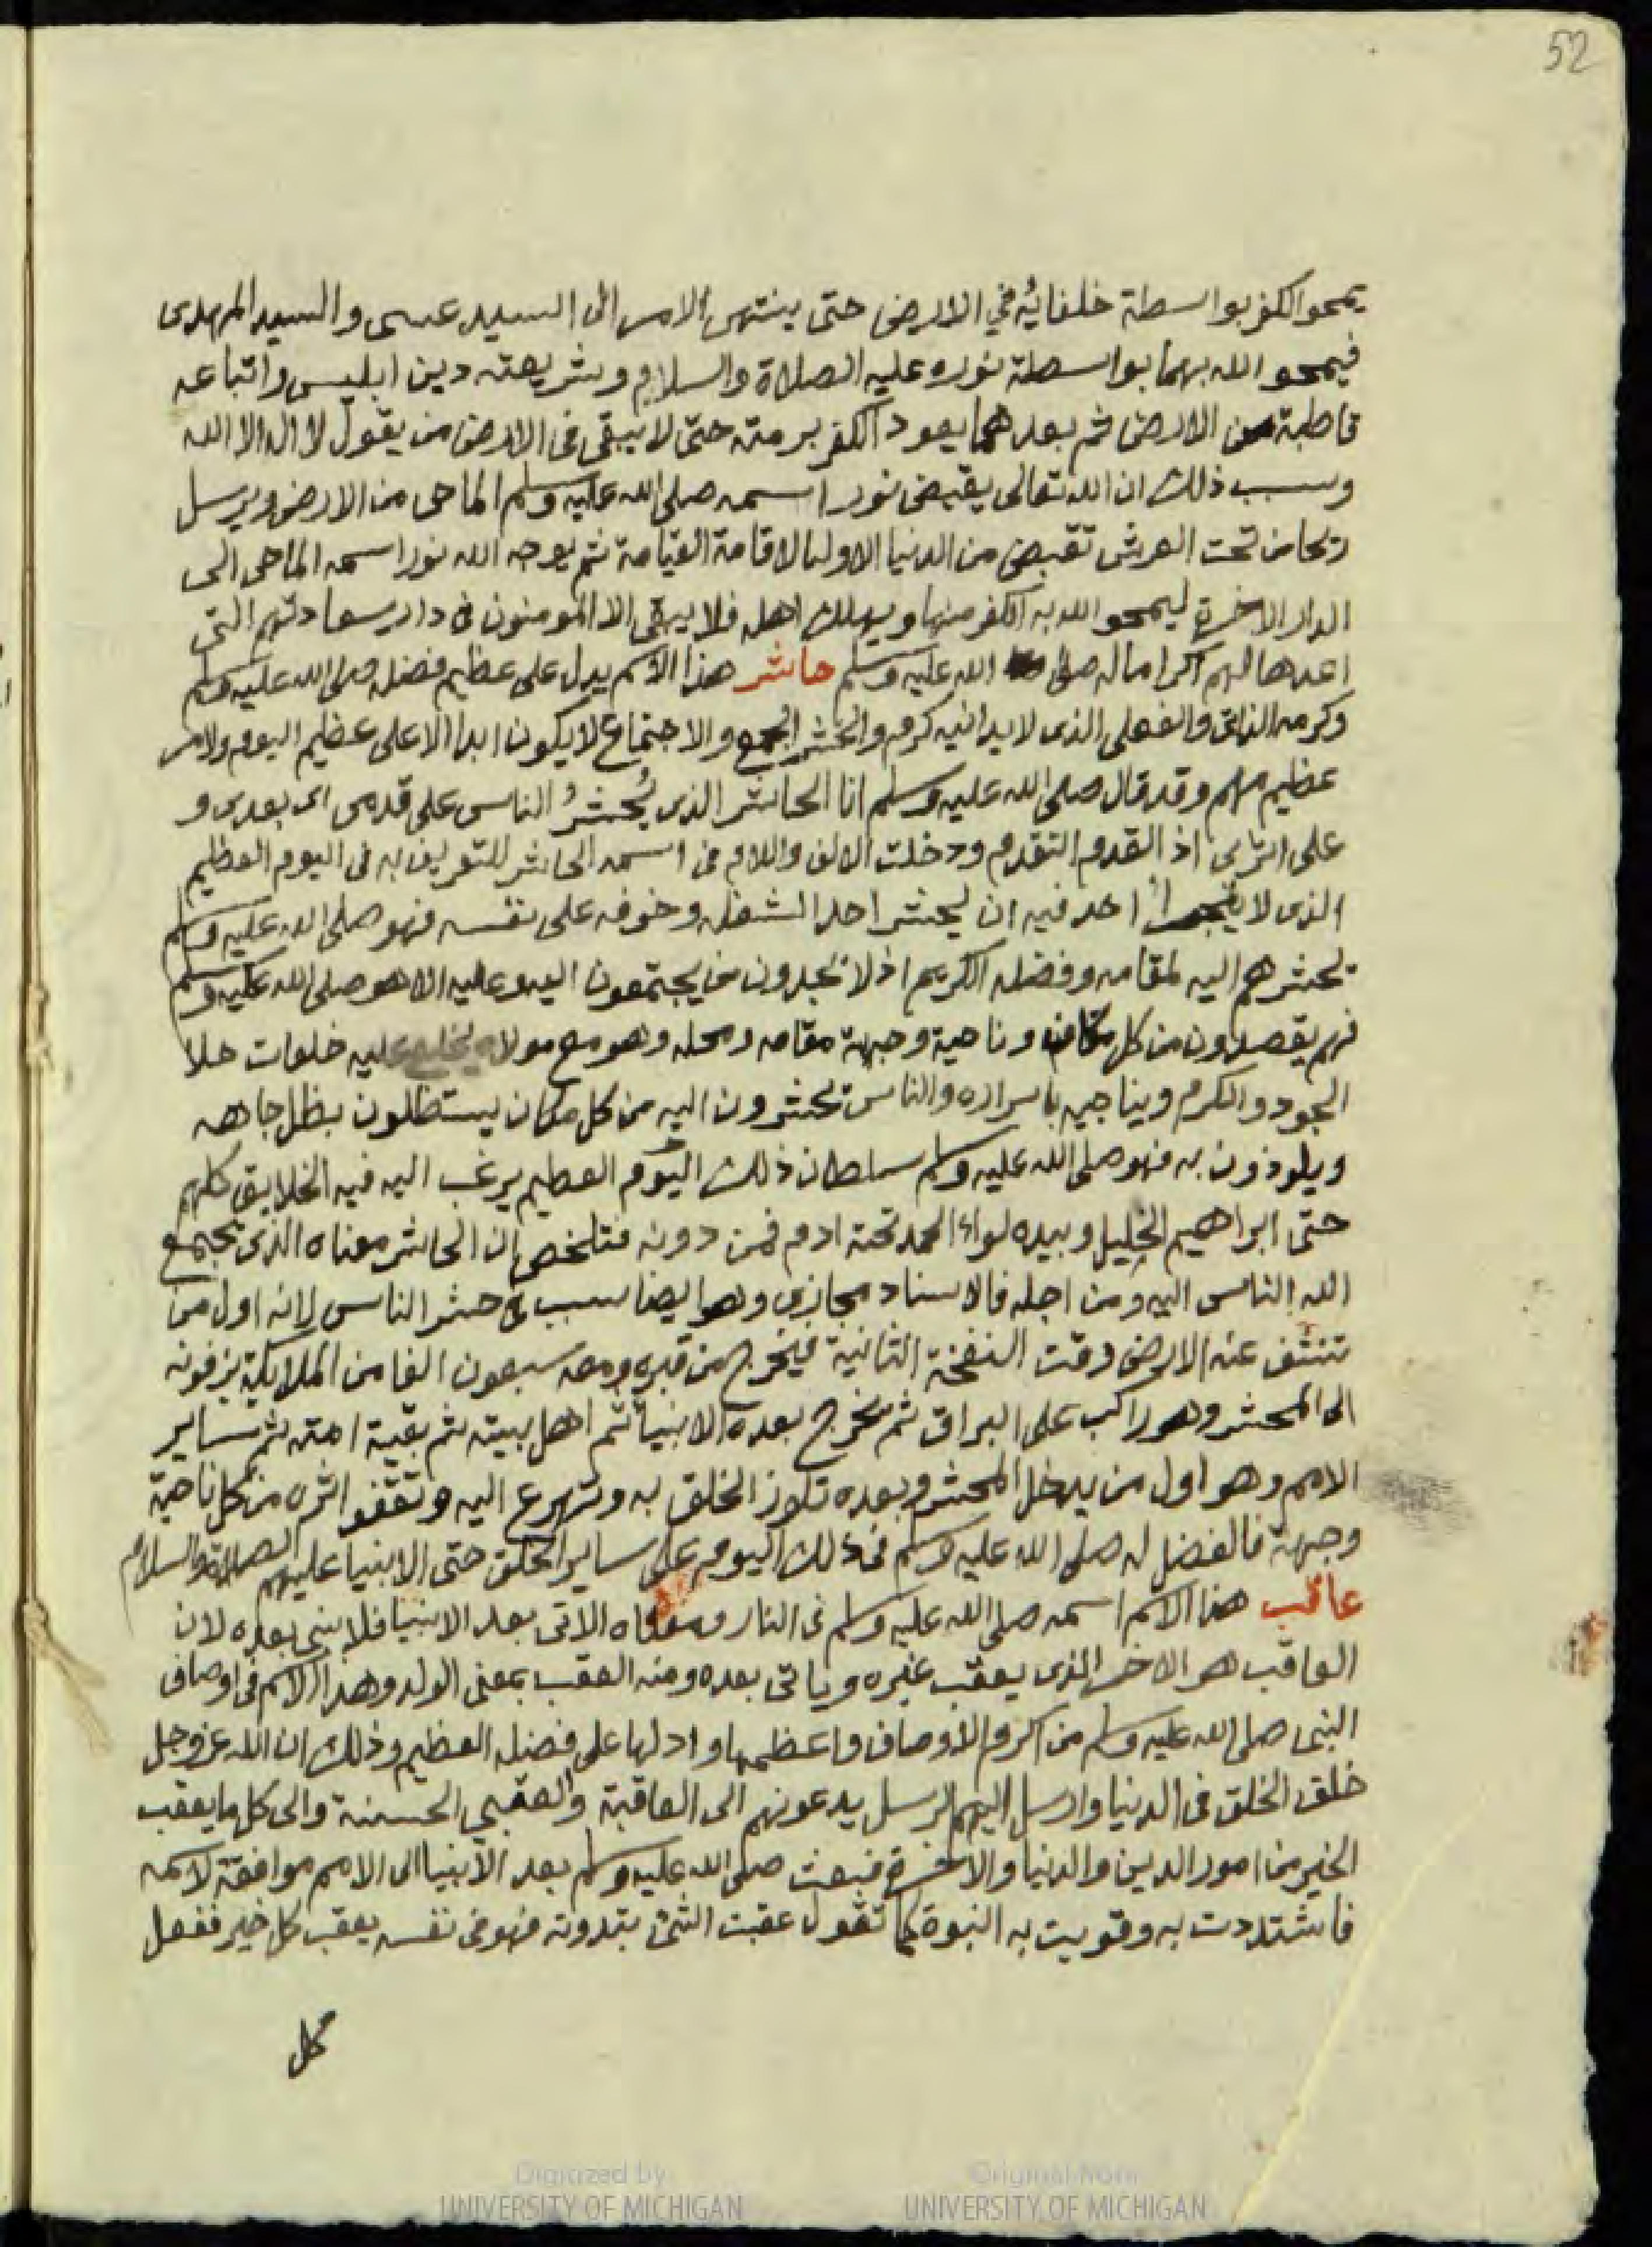 52
يمحو الكفر بواسطة خلفائه في الارض حتى ينتهى الامر الى السيد عيسى والسيد المهدى
فيمحو الله بهما بواسطة نوره عليه الصلاة والسلام وشريعته دين ابليس واتباعه
قاطبة من الارض ثم بعدهما يعود الكفر برمته حتى لا يبقى فى الارض من يقول لا اله الا الله
وسبب ذلك ان الله تعالى يقبض نور اسمه صلى الله عليه وسلم الماحى من الارض ويرسل
ريحا من تحت العرش تقبض من الدنيا الاوليا لاقامة القيامة ثم يوجه الله نور اسمه الماحى الى
الدار الاخرة ليمحو الله به الكفر منها ويهلك اهله فلا يبقى الا المومنون فى دار سعادتهم التى
اعدها لهم اكراما له صلى الله عليه وسلم حاشر هذا الاسم يدل على عظيم فضله صلى الله عليه وسلم
وكرمه الذاتى والفعلى الذى لا يدانيه كرم والحشر الجمع والاجتماع لا يكون ابدا الا على عظيم اليوم ولامر
عظيم مهم وقد قال صلى الله عليه وسلم انا الحاشر الذى يُحشرُ الناس على قدمى اى بعدى و
على اثرى اذ القدم التقدم ودخلت الالف واللام فى اسمه الحاشر للتعريف به فى اليوم العظيم
الذى لا احد فيه ان يحشر احدا لشغله وخوفه على نفسه فهو صلى الله عليه وسلم
تحشرهم اليه لمقامه وفضله الكريم اذ لا تجدون من يجتمعون اليه وعليه الا هو صلى الله عليه وسلم
فهم يقصدون من كل مكان وناحية وجهة مقامه ومحله وهو مع مولاه يخلع عليه خلعات حلا
الجود والكرم ويناجيه باسراره والناس تحشرون اليه من كل مكان يستظلون بظل جاهه
ويلوذون به فهو صلى الله عليه وسلم سلطان ذلك اليوم العظيم يرغب اليه فيه الخلايق كلهم
حتى ابراهيم الخليل وبيده لواء الحمد تحته ادم فمن دونه فتلخص ان الحاشر معناه الذى يجمع
الله الناس اليه ومن اجله فالاسناد مجازى وهو ايضا سبب فى حشر الناس لانه اول من
تنشق عنه الارض وقت النفخة الثانية فيخرج من قبره ومعه سبعون الفا من الملايكة يزفونه
الى المحشر وهو راكب على البراق ثم يخرج بعده الانبيا ثم اهل بيته ثم بقية امته ثم ساير
الامم وهو اول من يدخل المحشر وبعده تلوذ الخلق به وتهرع اليه وتقفو اثره من كل ناحية
وجهة فالفضل له صلى الله عليه وسلم فى ذلك اليوم على ساير الخلق حتى الانبيا عليهم الصلاة والسلام
عاقب هذا الاسم اسمه صلى الله عليه وسلم فى النار ومعناه الاتى بعد الانبيا فلا نبى بعده لان
العاقب هو الاخر الذى يعقب غيره وياتى بعده ومنه العقب بمعنى الولد وهذا الاسم فى اوصاف
النبى صلى الله عليه وسلم من اكرم الاوصاف واعظمها وادلها على فضله العظيم وذلك ان الله عز وجل
خلق الخلق فى الدنيا وارسل اليهم الرسل يدعونهم الى العاقبة والعقبى الحسنة والى كل ما يعقب
الخير من امور الدين والدنيا والاخرة فبعث صلى الله عليه وسلم بعد الانبيا الى الامم موافقة لاسمه
فاشتددت به وقويت به النبوة كما تقول عقبت الشئ فهو فى نفسه يعقب كل خير ففعل
كل
Digitized by
UNIVERSITY OF MICHIGAN
Original from
UNIVERSITY OF MICHIGAN